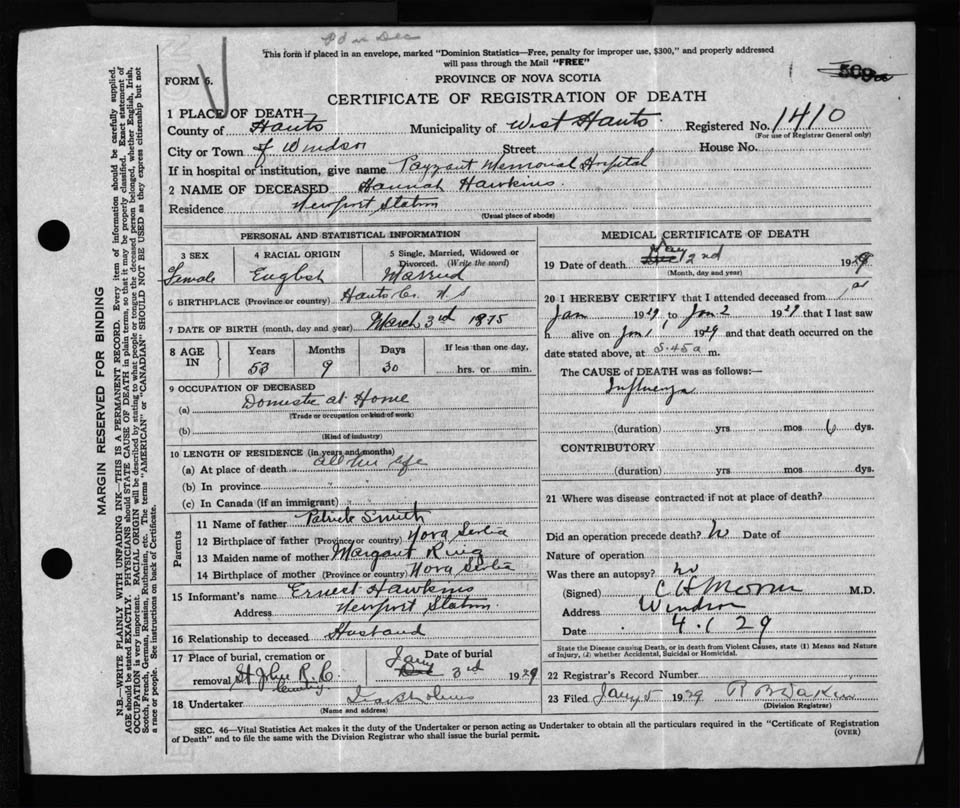 This form if placed in an envelope, marked "Dominion Statistics—Free, penalty for improper use, $300," and properly addressed
will pass through the Mail "FREE"
FORM 6.
PROVINCE OF NOVA SCOTIA
CERTIFICATE OF REGISTRATION OF DEATH
509
1 PLACE OF DEATH
County of Hants Municipality of West Hants Registered No. 1410
(For use of Registrar General only)
City or Town of Windsor Street House No.
If in hospital or institution, give name Payzant Memorial Hospital
2 NAME OF DECEASED Hannah Hawkins
Residence Newport Station
(Usual place of abode)
PERSONAL AND STATISTICAL INFORMATION
3 SEX 4 RACIAL ORIGIN 5 Single, Married, Widowed or
Divorced. (Write the word)
Female English Married
6 BIRTHPLACE (Province or country) Hants Co. N S
7 DATE OF BIRTH (month, day and year) March 3rd 1875
8 AGE IN Years Months Days If less than one day,
53 9 30 hrs. or min.
9 OCCUPATION OF DECEASED
(a) Domestic at Home
(Trade or occupation or kind of work)
(b)
(Kind of industry)
10 LENGTH OF RESIDENCE (in years and months)
(a) At place of death all her life
(b) In province " "
(c) In Canada (if an immigrant) " "
Parents
11 Name of father Patrick Smith
12 Birthplace of father (Province or country) Nova Scotia
13 Maiden name of mother Margaret King
14 Birthplace of mother (Province or country) Nova Scotia
15 Informant's name Ernest Hawkins
Address Newport Station
16 Relationship to deceased Husband
17 Place of burial, cremation or Date of burial
removal St. John R. C. Cemetery Jany Dec 3rd 1929
18 Undertaker
(Name and address)
MEDICAL CERTIFICATE OF DEATH
19 Date of death Jany Dec 2nd 1929
(Month, day and year)
20 I HEREBY CERTIFY that I attended deceased from 1st
Jan 1929, to Jan 2 1929 that I last saw
h alive on Jan 1 1929 and that death occurred on the
date stated above, at 5.45 a m.
The CAUSE of DEATH was as follows:—
Influenza
(duration) yrs mos 6 dys.
CONTRIBUTORY
(duration) yrs mos dys.
21 Where was disease contracted if not at place of death?
Did an operation precede death? No Date of
Nature of operation
Was there an autopsy? no
(Signed) M.D.
Address Windsor
Date 4.1.29
State the Disease causing Death, or in death from Violent Causes, state (1) Means and
Nature of Injury, (2) whether Accidental, Suicidal or Homicidal.
22 Registrar's Record Number
23 Filed Jany 5 1929
(Division Registrar)
SEC. 46—Vital Statistics Act makes it the duty of the Undertaker or person acting as Undertaker to obtain all the particulars required in the "Certificate of Registration
of Death" and to file the same with the Division Registrar who shall issue the burial permit.
(OVER)
MARGIN RESERVED FOR BINDING
N.B.—WRITE PLAINLY WITH UNFADING INK—THIS IS A PERMANENT RECORD. Every item of information should be carefully supplied.
AGE should be stated EXACTLY. PHYSICIANS should STATE CAUSE OF DEATH in plain terms, so that it may be properly classified. Exact statement of
OCCUPATION is very important. RACIAL ORIGIN will be described by stating to what people or tongue the deceased person belonged, whether English, Irish,
Scotch, French, German, Russian, Ruthenian, etc. The terms "AMERICAN" or "CANADIAN" SHOULD NOT BE USED as they express citizenship but not
a race or people. See instructions on back of Certificate.